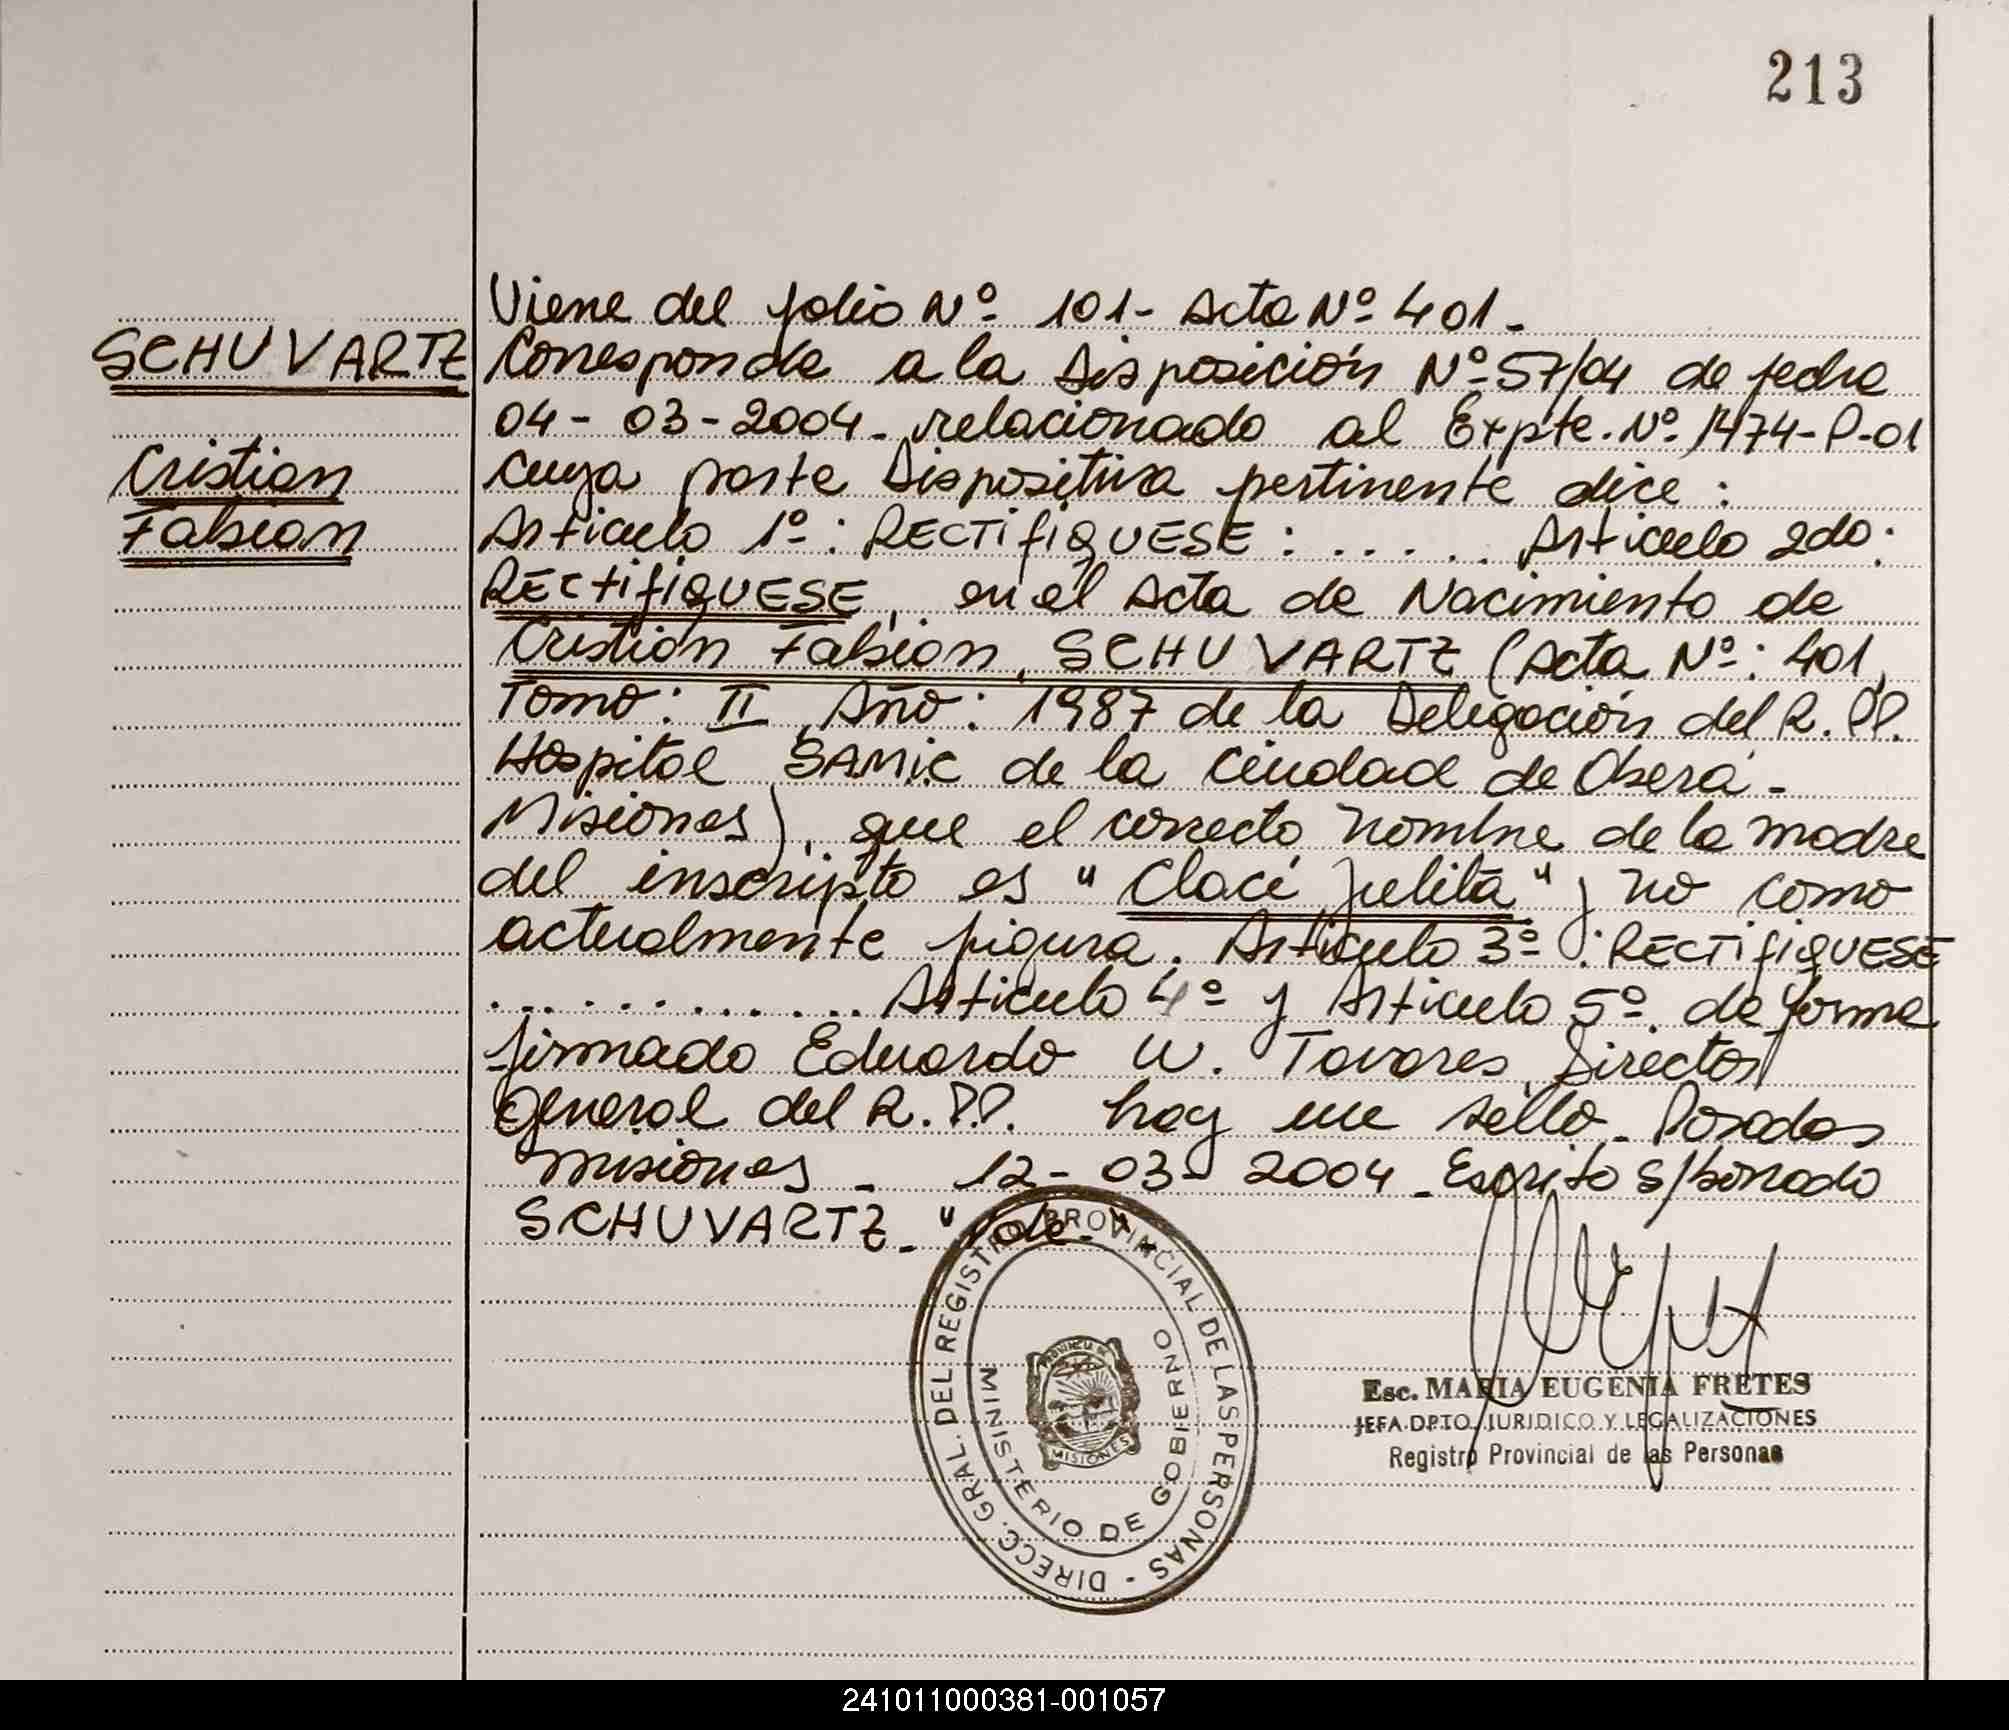 213
Viene del folio Nº 101- Acta Nº 401-
SCHUVARTZ
Corresponde a la Disposición Nº 57/04 de fecha
04-03-2004- relacionado al Expte. Nº 1474-P-01
Cristian
cuya parte Dispositiva pertinente dice:
Fabian
Articulo 1º: RECTIFIQUESE: ..... Articulo 2do:
RECTIFIQUESE, en el Acta de Nacimiento de
Cristian Fabian, SCHUVARTZ (Acta Nº: 401,
Tomo: II, Año: 1987 de la Delegación del R.PP.
Hospital SAMIC de la Ciudad de Oberá-
Misiones), que el correcto nombre de la madre
del inscripto es "Claci Julita" y no como
actualmente figura. Articulo 3º: RECTIFIQUESE
............. Articulo 4º y Articulo 5º de forma
firmado Eduardo W. Tavares, Director
General del R.P.P. hay un sello- Posadas
Misiones - 12-03-2004- Escrito s/borrado
SCHUVARTZ- "Vale"-
DIRECC. GRAL. DEL REGISTRO PROVINCIAL DE LAS PERSONAS -
MINISTERIO DE GOBIERNO
PROVINCIA DE
MISIONES
Esc. MARIA EUGENIA FRETES
JEFA DPTO. JURIDICO Y LEGALIZACIONES
Registro Provincial de las Personas
241011000381-001057